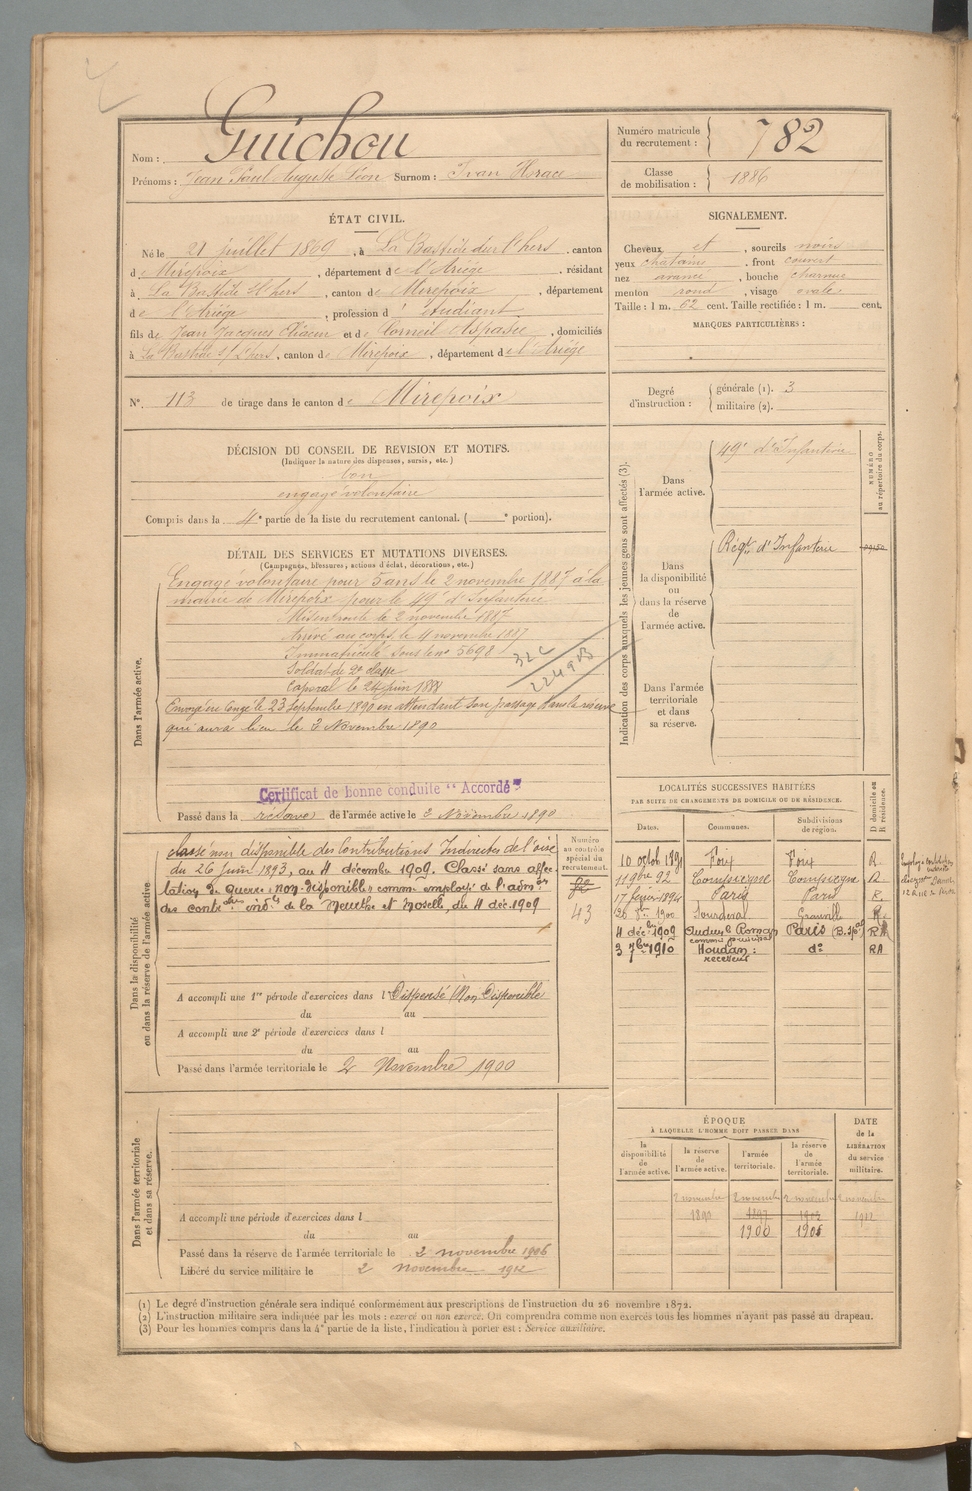 Nom : Guichou
Prénoms : Jean Paul Auguste Léon Surnom : Ivan Horace
Numéro matricule du recrutement : 782
Classe de mobilisation : 1886
ÉTAT CIVIL.
Né le 21 juillet 1869, à La Bastide sur l'hers, canton
de Mirepoix, département de l'Ariège, résidant
à La Bastide s/ l'hers, canton de Mirepoix, département
de l'Ariège, profession d'étudiant
fils de Jean Jacques et de Corneil Aspasie, domiciliés
à La Bastide s/ L'hers, canton de Mirepoix, département de l'Ariège
SIGNALEMENT.
Cheveux et, sourcils noirs
yeux chatains, front couvert
nez avancé, bouche charnue
menton rond, visage ovale
Taille : 1 m. 62 cent. Taille rectifiée : 1 m. cent.
MARQUES PARTICULIÈRES :
N° 113 de tirage dans le canton de Mirepoix
Degré d'instruction : générale (1). 3
militaire (2).
DÉCISION DU CONSEIL DE REVISION ET MOTIFS.
(Indiquer la nature des dispenses, sursis, etc.)
bon
engagé volontaire
Compris dans la 4e partie de la liste du recrutement cantonal. ( e portion).
DÉTAIL DES SERVICES ET MUTATIONS DIVERSES.
(Campagnes, blessures, actions d'éclat, décorations, etc.)
Dans l'armée active.
Engagé volontaire pour 5 ans le 2 novembre 1887 à la
mairie de Mirepoix pour le 49e d'Infanterie
Mis en route le 2 novembre 1887
Arrivé au corps le 4 novembre 1887
Immatriculé sous le no 5698
Soldat de 2e classe
Caporal le 24 juin 1888
Envoyé en congé le 23 Septembre 1890 en attendant son passage dans la réserve
qui aura lieu le 3 Novembre 1890
32C
224903
Certificat de bonne conduite "Accordé"
Passé dans la réserve de l'armée active le 2 Novembre 1890
Indication des corps auxquels les jeunes gens sont affectés (3).
NUMÉRO au répertoire du corps.
Dans l'armée active. 49e d'Infanterie
Dans la disponibilité ou dans la réserve de l'armée active. Régt d'Infanterie
Dans l'armée territoriale et dans sa réserve.
Dans la disponibilité ou dans la réserve de l'armée active.
Numéro au contrôle spécial du recrutement.
43
classé non disponible des Contributions Indirectes de l'oise
du 26 juin 1893, au 4 décembre 1909. Classé sans affec-
tation de guerre. non-disponible comme employé de l'admon
des contrions indtes de la Meurthe et Moselle, du 4 déc. 1909
A accompli une 1re période d'exercices dans l Dispensé (Non Disponible
du au
A accompli une 2e période d'exercices dans l
du au
Passé dans l'armée territoriale le 2 Novembre 1900
LOCALITÉS SUCCESSIVES HABITÉES
PAR SUITE DE CHANGEMENTS DE DOMICILE OU DE RÉSIDENCE.
Dates. Communes. Subdivisions de région. D domicile ou R résidence.
10 octob 1891 Foix Foix R.
11 9bre 92 Compiègne Compiègne R.
17 février 1894 Paris Paris R.
1900 Sourdeval Granville R.
4 décbre 1909 Audun le Roman Paris RA
commis principal
3 7bre 1910 Houdan : do RA
receveur
Dans l'armée territoriale et dans sa réserve.
A accompli une période d'exercices dans l
du au
Passé dans la réserve de l'armée territoriale le 2 novembre 1906
Libéré du service militaire le 2 novembre 1912
ÉPOQUE
À LAQUELLE L'HOMME DOIT PASSER DANS
DATE de la LIBÉRATION du service militaire.
la disponibilité de l'armée active. la réserve de l'armée active. l'armée territoriale. la réserve de l'armée territoriale.
2 novembre 2 novembre 2 novembre 2 novembre
1890 1897 1903 1912
1900 1906
(1) Le degré d'instruction générale sera indiqué conformément aux prescriptions de l'instruction du 26 novembre 1872.
(2) L'instruction militaire sera indiquée par les mots : exercé ou non exercé. On comprendra comme non exercés tous les hommes n'ayant pas passé au drapeau.
(3) Pour les hommes compris dans la 4e partie de la liste, l'indication à porter est : Service auxiliaire.